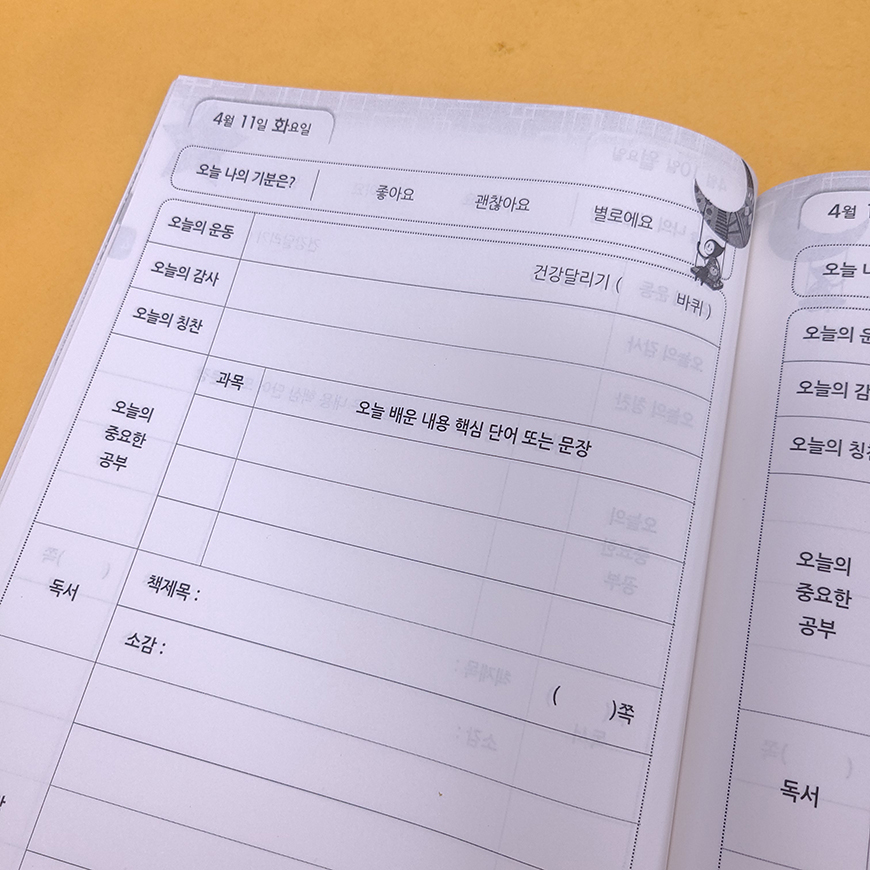 4월 11일 화요일
오늘 나의 기분은? 좋아요 괜찮아요 별로에요
오늘의 운동 건강달리기 ( 바퀴 )
오늘의 감사
오늘의 칭찬
오늘의
중요한
공부
과목 오늘 배운 내용 핵심 단어 또는 문장
독서
책제목 : ( )쪽
소감 :
4월
오늘
오늘의
오늘의
오늘의
오늘의
중요한
공부
독서